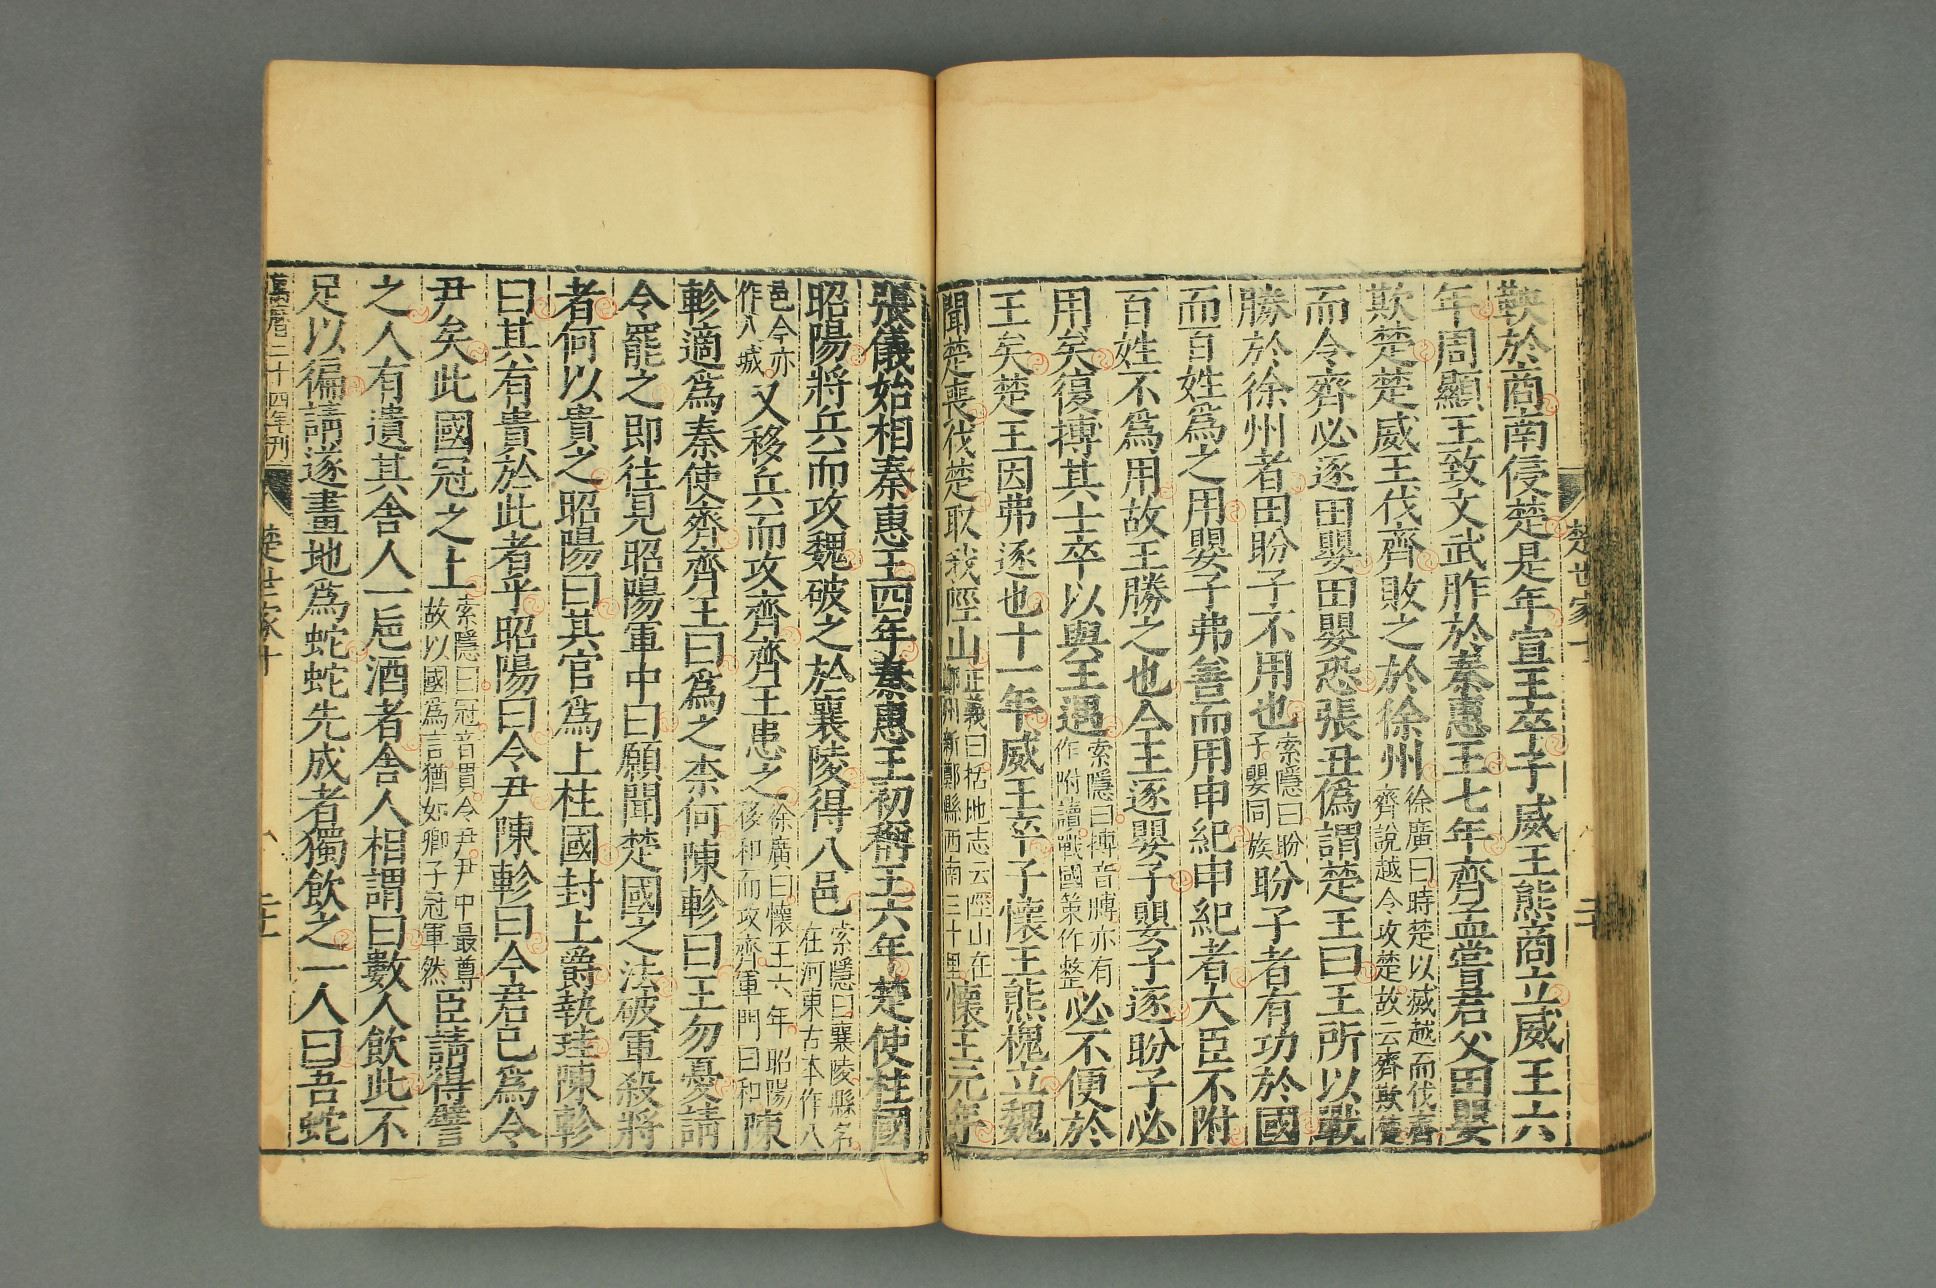 楚世家十
二十
鞅於商南侵楚是年宣王卒子威王熊商立威王六
年周顯王致文武胙於秦惠王七年齊孟嘗君父田嬰
欺楚楚威王伐齊敗之於徐州徐廣曰時楚以滅越而伐齊齊說越令攻楚故云齊欺楚
而令齊必逐田嬰田嬰恐張丑偽謂楚王曰王所以戰
勝於徐州者田盼子不用也索隱曰盼子嬰同族盼子者有功於國
而百姓爲之用嬰子弗善而用申紀申紀者大臣不附
百姓不爲用故王勝之也今王逐嬰子嬰子逐盼子必
用矣復摶其士卒以與王遇索隱曰摶音膊亦有作附讀戰國策作整必不便於
王矣楚王因弗逐也十一年威王卒子懷王熊槐立魏
聞楚喪伐楚取我陘山正義曰括地志云陘山在鄭州新鄭縣西南三十里懷王元年
張儀始相秦惠王四年秦惠王初稱王六年楚使柱國
昭陽將兵而攻魏破之於襄陵得八邑索隱曰襄陵縣名在河東古本作八
邑今亦作八城又移兵而攻齊齊王患之徐廣曰懷王六年昭陽移和而攻齊軍門曰和陳
軫適爲秦使齊齊王曰爲之柰何陳軫曰王勿憂請
令罷之即往見昭陽軍中曰願聞楚國之法破軍殺將
者何以貴之昭陽曰其官爲上柱國封上爵執珪陳軫
曰其有貴於此者乎昭陽曰令尹陳軫曰今君已爲令
尹矣此國冠之上索隱曰冠音貫令尹尹中最尊故以國爲言猶如卿子冠軍然臣請得譬
之人有遺其舍人一巵酒者舍人相謂曰數人飲此不
足以徧請遂畫地爲蛇蛇先成者獨飲之一人曰吾蛇
萬曆二十四年刊
楚世家十